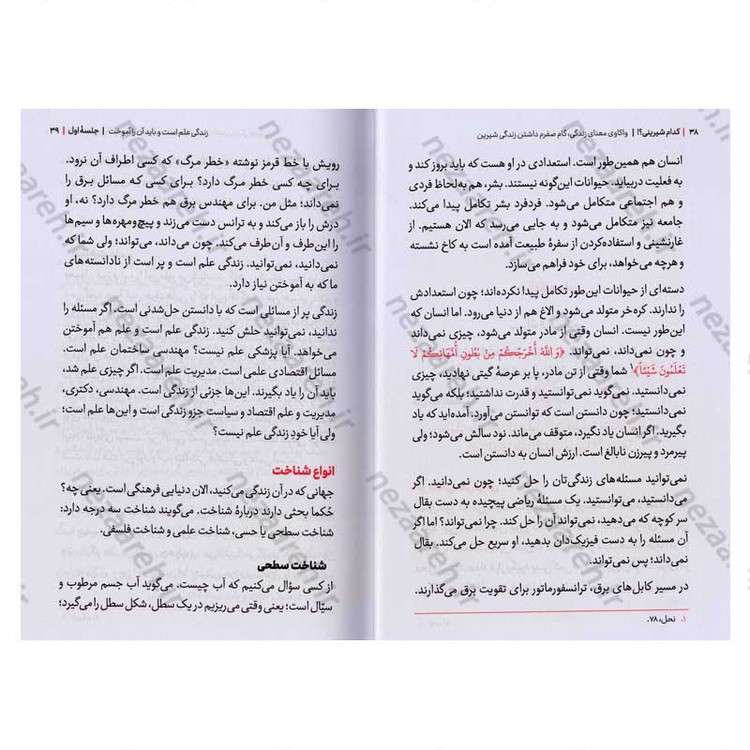 ۳۸ | کدام شیرینی؟! | واکاوی معنای زندگی، گام صفرم داشتن زندگی شیرین
انسان هم همین‌طور است. استعدادی در او هست که باید بروز کند و
به فعلیت دربیاید. حیوانات این‌گونه نیستند. بشر، هم به‌لحاظ فردی
و هم اجتماعی متکامل می‌شود. فردفرد بشر تکامل پیدا می‌کند.
جامعه نیز متکامل می‌شود و به جایی می‌رسد که الان هستیم. از
غارنشینی و استفاده‌کردن از سفرهٔ طبیعت آمده است به کاخ نشسته
و هرچه می‌خواهد، برای خود فراهم می‌سازد.
دسته‌ای از حیوانات این‌طور تکامل پیدا نکرده‌اند؛ چون استعدادش
را ندارند. کره‌خر متولد می‌شود و الاغ هم از دنیا می‌رود. اما انسان که
این‌طور نیست. انسان وقتی از مادر متولد می‌شود، چیزی نمی‌داند
و چون نمی‌داند، نمی‌تواند. ﴿وَ اللهُ أَخْرَجَكُمْ مِنْ بُطُونِ أُمَّهَاتِكُمْ لَا
تَعْلَمُونَ شَيْئًا﴾۱ شما وقتی از تن مادر، پا بر عرصهٔ گیتی نهادید، چیزی
نمی‌دانستید. نمی‌گوید نمی‌توانستید و قدرت نداشتید؛ بلکه می‌گوید
نمی‌دانستید؛ چون دانستن است که توانستن می‌آورد. آمده‌اید که یاد
بگیرید. اگر انسان یاد نگیرد، متوقف می‌ماند. نود سالش می‌شود؛ ولی
پیرمرد و پیرزن نابالغ است. ارزش انسان به دانستن است.
نمی‌توانید مسئله‌های زندگی‌تان را حل کنید؛ چون نمی‌دانید. اگر
می‌دانستید، می‌توانستید. یک مسئلهٔ ریاضی پیچیده به دست بقال
سر کوچه که می‌دهید، نمی‌تواند آن را حل کند. چرا نمی‌تواند؟ اما اگر
آن مسئله را به دست فیزیک‌دان بدهید، او سریع حل می‌کند. بقال
نمی‌داند؛ پس نمی‌تواند.
در مسیر کابل‌های برق، ترانسفورماتور برای تقویت برق می‌گذارند.
۱. نحل، ۷۸.
زندگی علم است و باید آن را آموخت | جلسهٔ اول | ۳۹
رویش با خط قرمز نوشته «خطر مرگ» که کسی اطراف آن نرود.
برای چه کسی خطر مرگ دارد؟ برای کسی که مسائل برق را
نمی‌داند؛ مثل من. برای مهندس برق هم خطر مرگ دارد؟ نه، او
درش را باز می‌کند و به ترانس دست می‌زند و پیچ‌ومهره‌ها و سیم‌ها
را این‌طرف و آن‌طرف می‌کند. چون می‌داند، می‌تواند؛ ولی شما که
نمی‌دانید، نمی‌توانید. زندگی علم است و پر است از نادانسته‌های
ما که به آموختن نیاز دارد.
زندگی پر از مسائلی است که با دانستن حل‌شدنی است. اگر مسئله را
ندانید، نمی‌توانید حلش کنید. زندگی علم است و علم هم آموختن
می‌خواهد. آیا پزشکی علم نیست؟ مهندسی ساختمان علم است.
مسائل اقتصادی علمی است. مدیریت علم است. اگر چیزی علم شد،
باید آن را یاد بگیرند. این‌ها جزئی از زندگی است. مهندسی، دکتری،
مدیریت و علم اقتصاد و سیاست جزو زندگی است و این‌ها علم است؛
ولی آیا خودِ زندگی علم نیست؟
انواع شناخت
جهانی که در آن زندگی می‌کنید، الان دنیایی فرهنگی است. یعنی چه؟
حُکما بحثی دارند دربارهٔ شناخت. می‌گویند شناخت سه درجه دارد:
شناخت سطحی یا حسی، شناخت علمی و شناخت فلسفی.
شناخت سطحی
از کسی سؤال می‌کنیم که آب چیست. می‌گوید آب جسم مرطوب و
سیّال است؛ یعنی وقتی می‌ریزیم در یک سطل، شکل سطل را می‌گیرد؛
nezaareh.ir